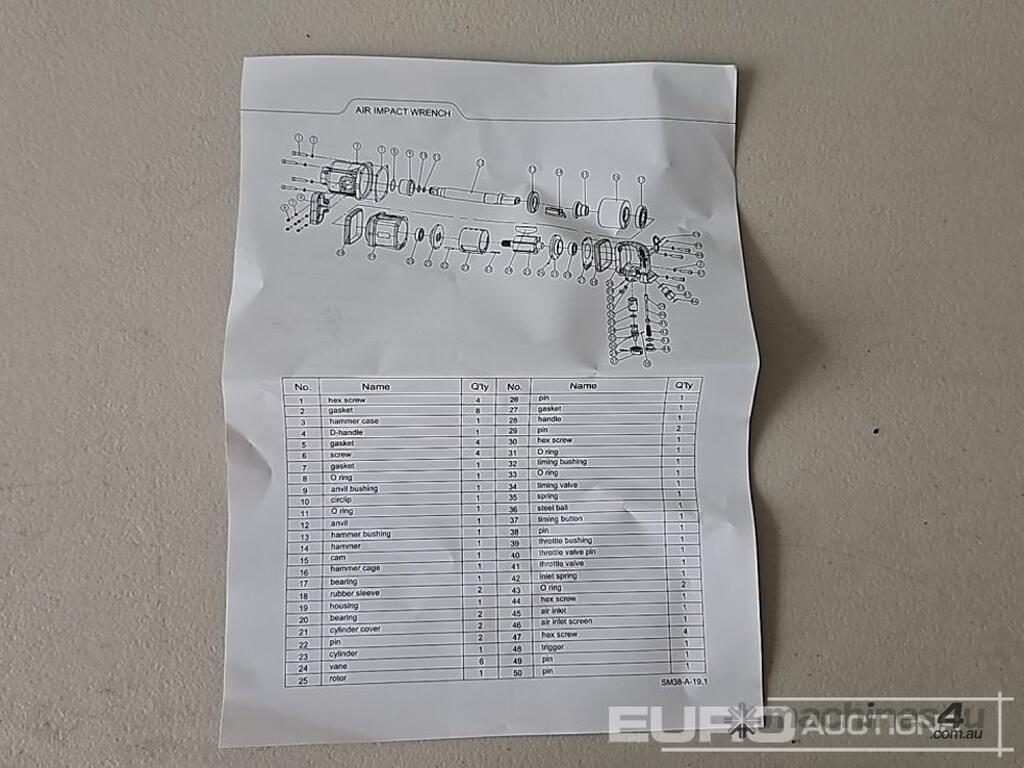 AIR IMPACT WRENCH
No. Name Q'ty No. Name Q'ty
1 hex screw 4 26 pin 1
2 gasket 8 27 gasket 1
3 hammer case 1 28 handle 1
4 D-handle 1 29 pin 2
5 gasket 4 30 hex screw 1
6 screw 4 31 O ring 1
7 gasket 1 32 timing bushing 1
8 O ring 1 33 O ring 1
9 anvil bushing 1 34 timing valve 1
10 circlip 1 35 spring 1
11 O ring 1 36 steel ball 1
12 anvil 1 37 timing button 1
13 hammer bushing 1 38 pin 1
14 hammer 1 39 throttle bushing 1
15 cam 1 40 throttle valve pin 1
16 hammer cage 1 41 throttle valve 1
17 bearing 1 42 inlet spring 1
18 rubber sleeve 2 43 O ring 2
19 housing 1 44 hex screw 1
20 bearing 2 45 air inlet 1
21 cylinder cover 2 46 air inlet screen 1
22 pin 2 47 hex screw 4
23 cylinder 1 48 trigger 1
24 vane 6 49 pin 1
25 rotor 1 50 pin 1
SM38-A-19.1
machines4u
.com.au
EURO AUCTIONS